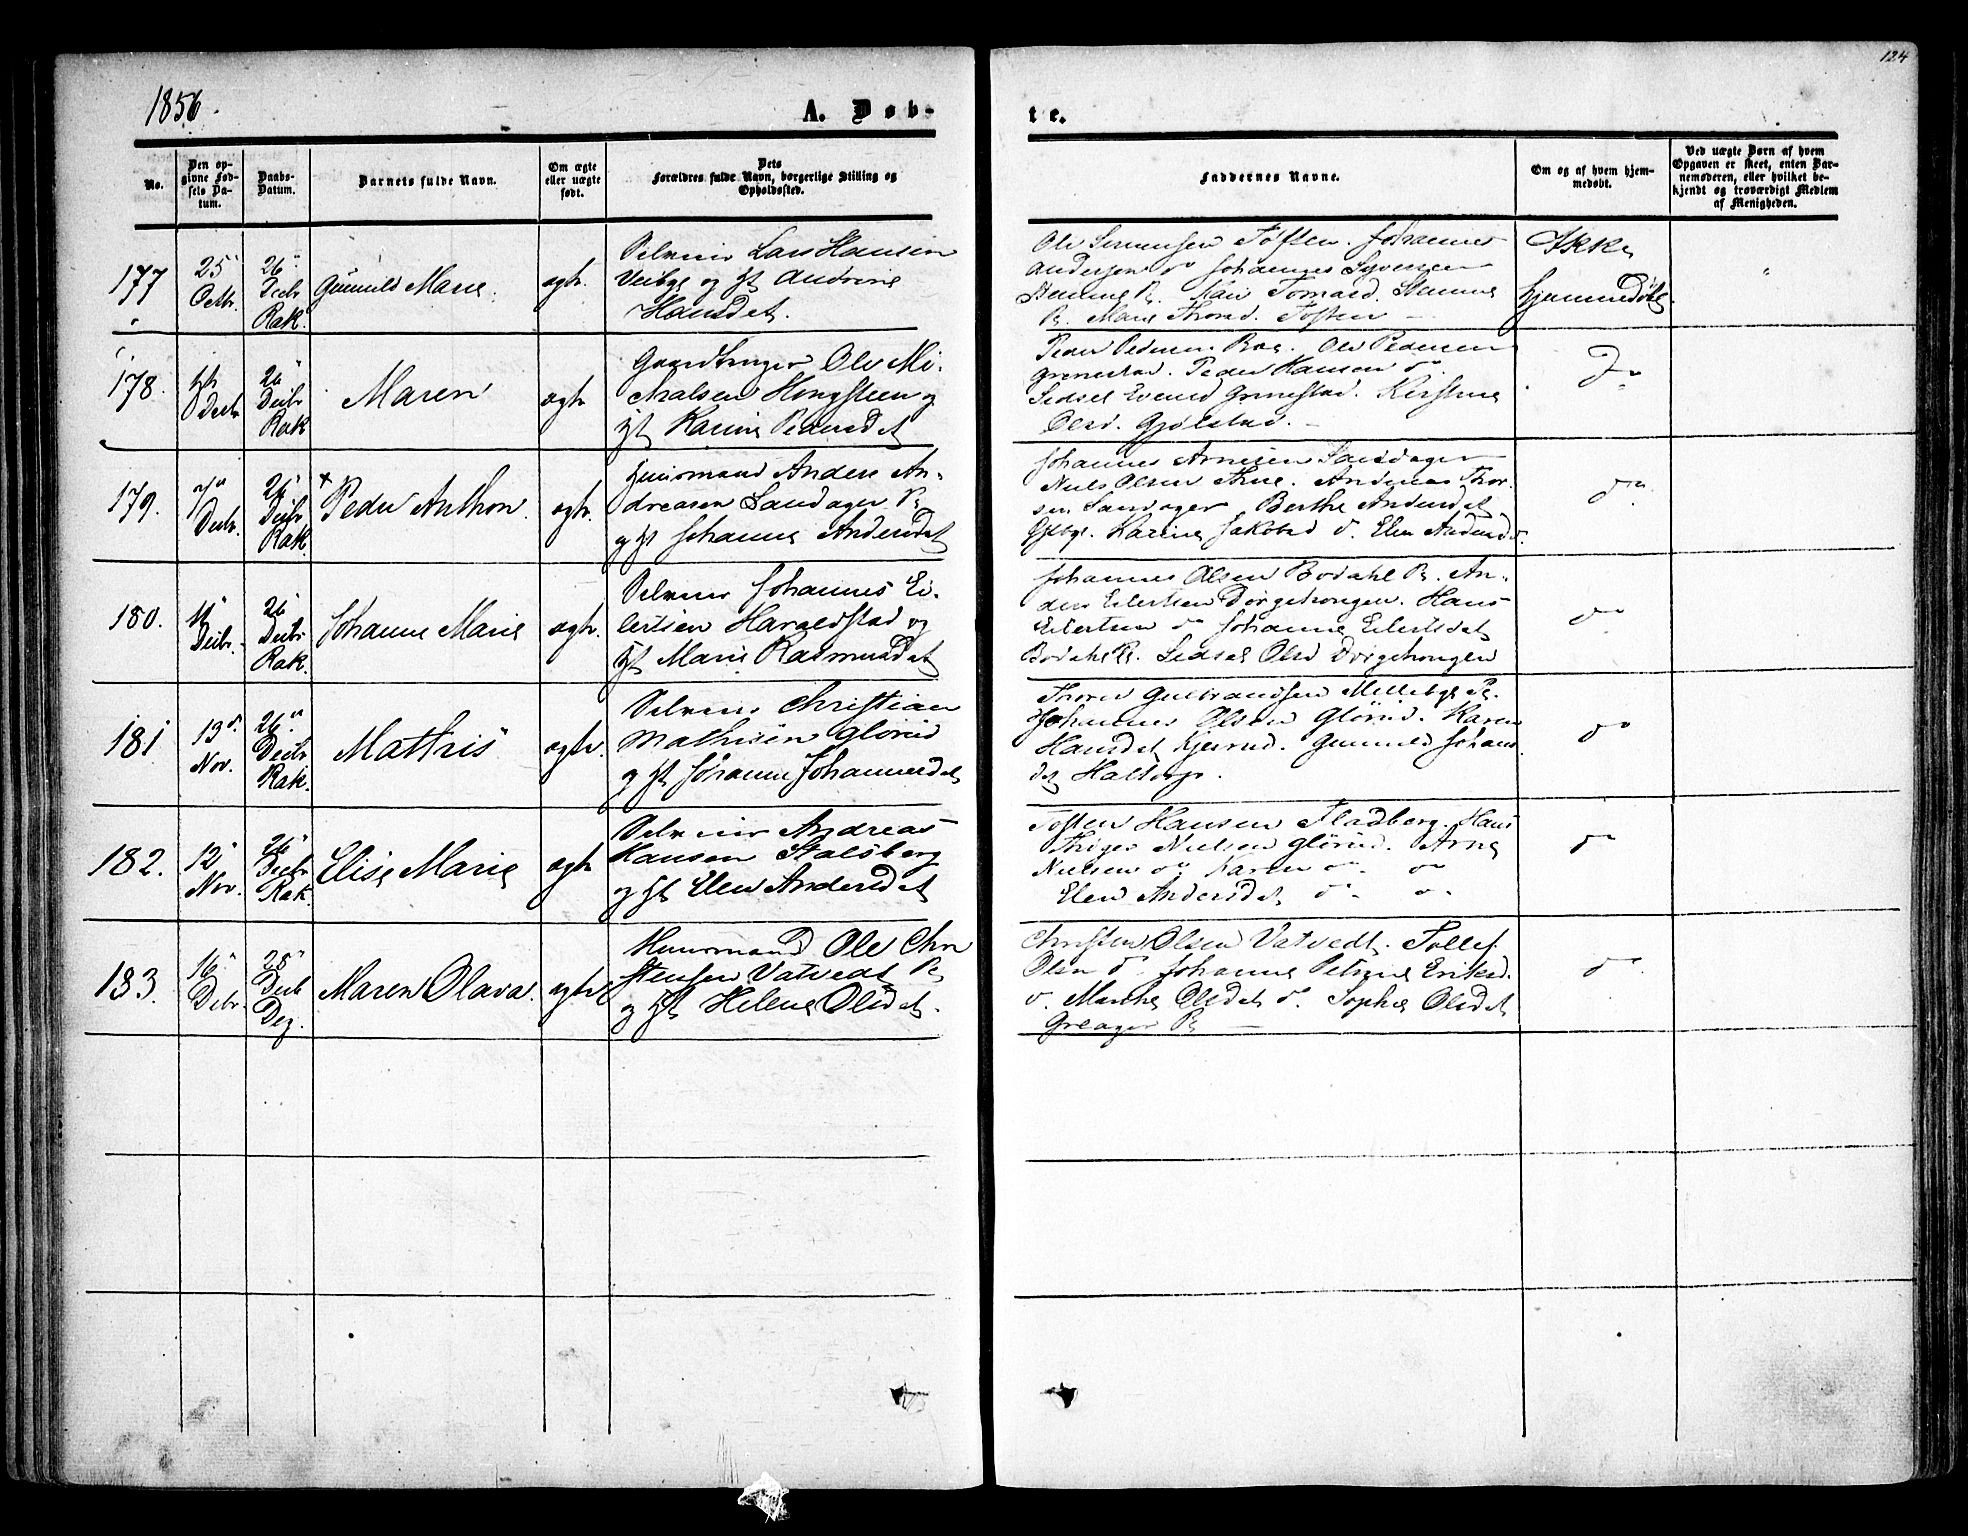 1856.
A. Døb-
te.
124
No.
Den op-
givne Fød-
sels Da-
tum.
Daabs-
Datum.
Barnets fulde Navn.
Om ægte
eller uægte
født.
Dets
Forældres fulde Navn, borgerlige Stilling og
Opholdssted.
Faddernes Navne.
Om og af hvem hjem-
medøbt.
Ved uægte Børn af hvem
Opgaven er skeet, enten Bar-
nemoderen, eller hvilket be-
kjendt og troværdigt Medlem
af Menigheden.
177
25
Octbr.
26
Decbr
Rak.
Gunnild Marie.
ægte.
Selveier Lars Hansen
og Andrine
Hansdat.
Ole Sørensen Tøften. Johannes
Andersen do Johannes Syversen
R. Kari
R. Marie Thorsd. Tøften
Ikke
hjemmedøbt.
178.
4
Decbr
26
Decbr
Rak
Maren
ægte
Gaardbruger Ole Mi-
chalsen Hougsteen og
Karine Pedersdat
Peder Pedersen Ole Pedersen
Grimestad. Peder Hansen do.
Sidsel Evensd Grimestad. Kirstine
Olsd. Gjølstad.
do
179.
7
Decbr.
26
Decbr
Rak.
Peder Anthon.
ægte.
Huusmand Anders An-
dreasen Sandager R
og Johanne Andersdat
Johannes Arnesen Sandager
Niels Olsen Andreas Thor-
sen Sandager Berthe Andersdat
Karine Jakobsd do. Elen Andersd do
do
180.
Decbr.
26
Decbr
Rak.
Johanne Marie
ægte.
Selveier Johannes Ei-
lertsen Haraldstad og
Marie Rasmusdat
Johannes Olsen Bodahl R. An-
ders Eilertsen Dørgehougen. Hans
Eilertsen do Johanne Eilertsdat
Bodahl R. Sidsel Olsd Dørgehougen
do
181
13
Nov.
26
Decbr
Rak.
Mathis
ægte.
Selveier Christian
Mathisen Glørud
og Johanne Johannesdat
Thorer Gulbrandsen Melleby R.
Johannes Olsen Glørud. Karen
Hansdat Kjærud. Gunnild Johans
dat Haltorp.
do
182.
12
Nov.
26
Decbr
Rak.
Elise Marie
ægte
Selveier Andreas
Hansen Stalsberg
og Elen Andersdat
Tosten Hansen Fladberg. Hans
Nielsen Glørud. Arne
Nielsen do. Karen do. do
Elen Andersdat do. do.
do
183.
16
Debr.
28
Decb
Deg.
Maren Olava.
ægte
Huusmand Ole Chri
stensen Vatvedt R
og Helene Olsdat.
Christen Olsen Vatvedt. Tollef
Olsen do. Johanne Petrine Eriksd.
do. Marthe Olsdat do. Sophie Olsdat
Greager R
do